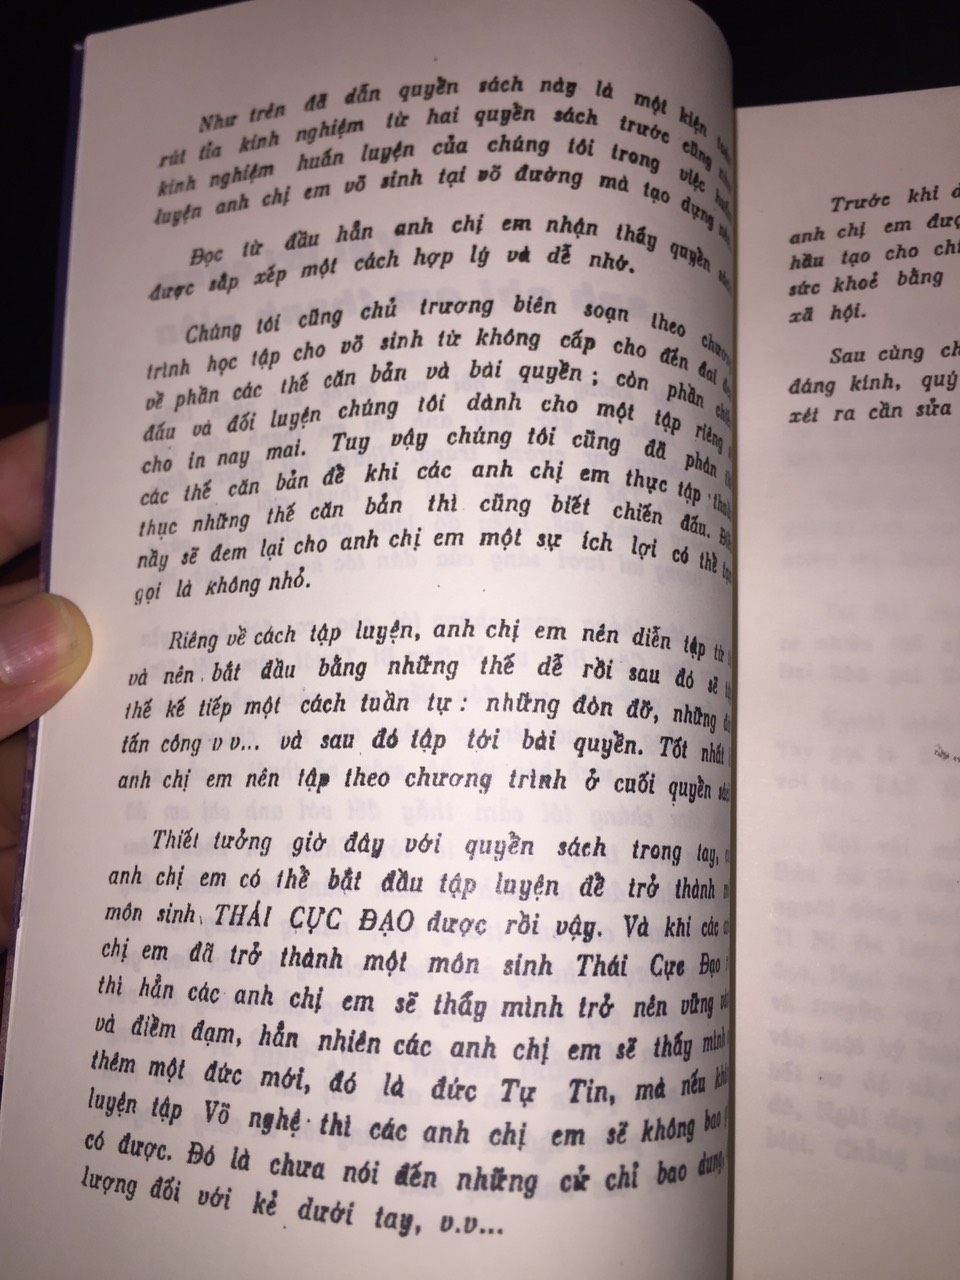 Như trên đã dẫn quyền sách này là một kiện
rút tỉa kinh nghiệm từ hai quyền sách trước cũng
kinh nghiệm huấn luyện của chúng tôi trong việc
luyện anh chị em võ sinh tại võ đường mà tạo dựng
Đọc từ đầu hẳn anh chị em nhận thấy quyền
được sắp xếp một cách hợp lý và dễ nhớ.
Chúng tôi cũng chủ trương biên soạn theo chương
trình học tập cho võ sinh từ không cấp cho đến đai
về phần các thế căn bản và bài quyền ; còn phần
đấu và đối luyện chúng tôi dành cho một tập riêng
cho in nay mai. Tuy vậy chúng tôi cũng đã phân
các thế căn bản đề khi các anh chị em thực tập
thục những thế căn bản thì cũng biết chiến đấu.
nầy sẽ đem lại cho anh chị em một sự ích lợi có thề
gọi là không nhỏ.
Riêng về cách tập luyện, anh chị em nên diễn tập từ
và nên bắt đầu bằng những thế dễ rồi sau đó sẽ
thế kế tiếp một cách tuần tự : những đòn đỡ, những
tấn công v v... và sau đó tập tới bài quyền. Tốt nhất
anh chị em nên tập theo chương trình ở cuối quyền
Thiết tưởng giờ đây với quyền sách trong tay,
anh chị em có thề bắt đầu tập luyện đề trở thành
môn sinh THÁI CỰC ĐẠO được rồi vậy. Và khi các
chị em đã trở thành một môn sinh Thái Cực Đạo
thì hẳn các anh chị em sẽ thấy mình trở nên vững
và điềm đạm, hẳn nhiên các anh chị em sẽ thấy mình
thêm một đức mới, đó là đức Tự Tin, mà nếu
luyện tập Võ nghệ thì các anh chị em sẽ không bao
có được. Đó là chưa nói đến những cử chỉ bao dung
lượng đối với kẻ dưới tay, v.v...
Trước khi
anh chị em
hầu tạo cho
sức khoẻ bằng
xã hội.
Sau cùng
đáng kính, quý
xét ra cần sửa